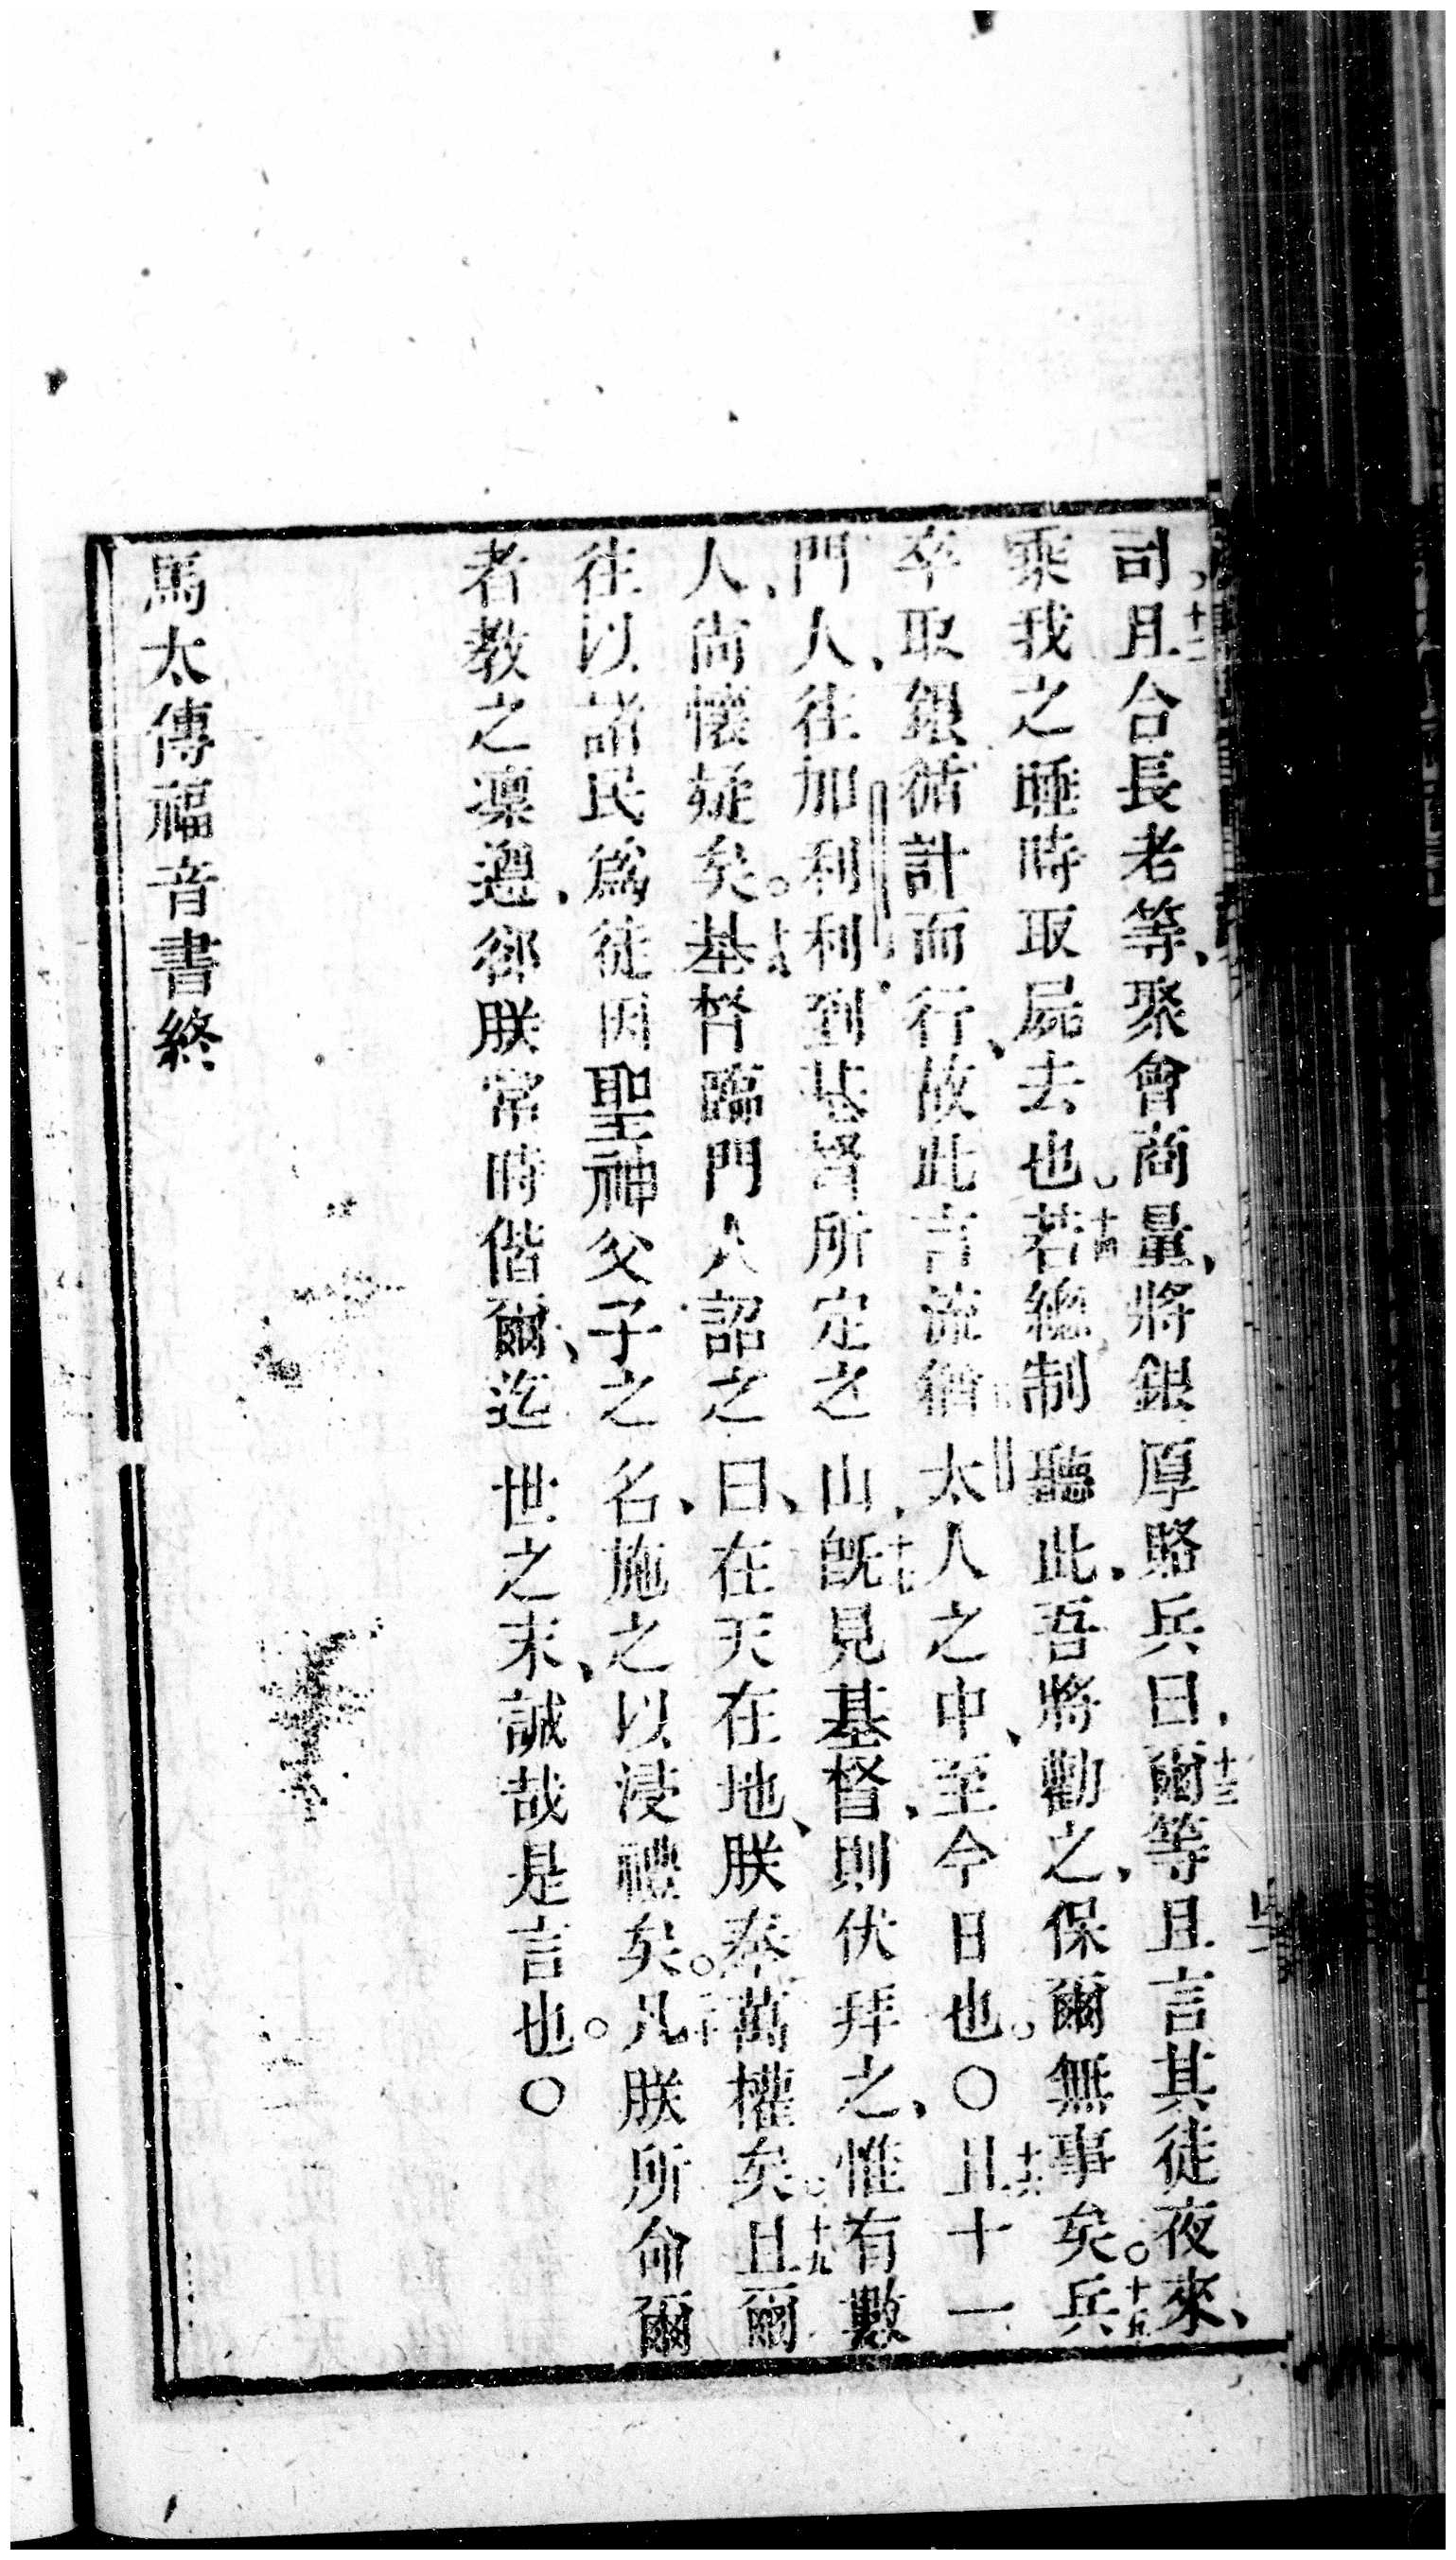 司、十二且合長老等、聚會商量、將銀厚賂兵曰、十三爾等且言其徒夜來、
乘我之睡時取屍去也。十四若總制聽此、吾將勸之、保爾無事矣。十五兵
卒取銀循計而行、故此言流猶太人之中、至今日也。〇十六且十一
門人、往加利利、到基督所定之山、十七既見基督、則伏拜之、惟有數
人、尚懷疑矣。基督臨門人詔之曰、在天在地、朕奉萬權矣。十九且爾
往以諸民爲徒因聖神父子之名、施之以浸禮矣。二十凡朕所命爾
者教之凜遵、鄉朕常時偕爾、迄世之末、誠哉是言也。〇
馬太傳福音書終